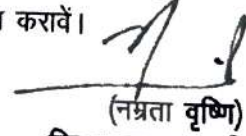 करावें।
(नम्रता वृष्णि)